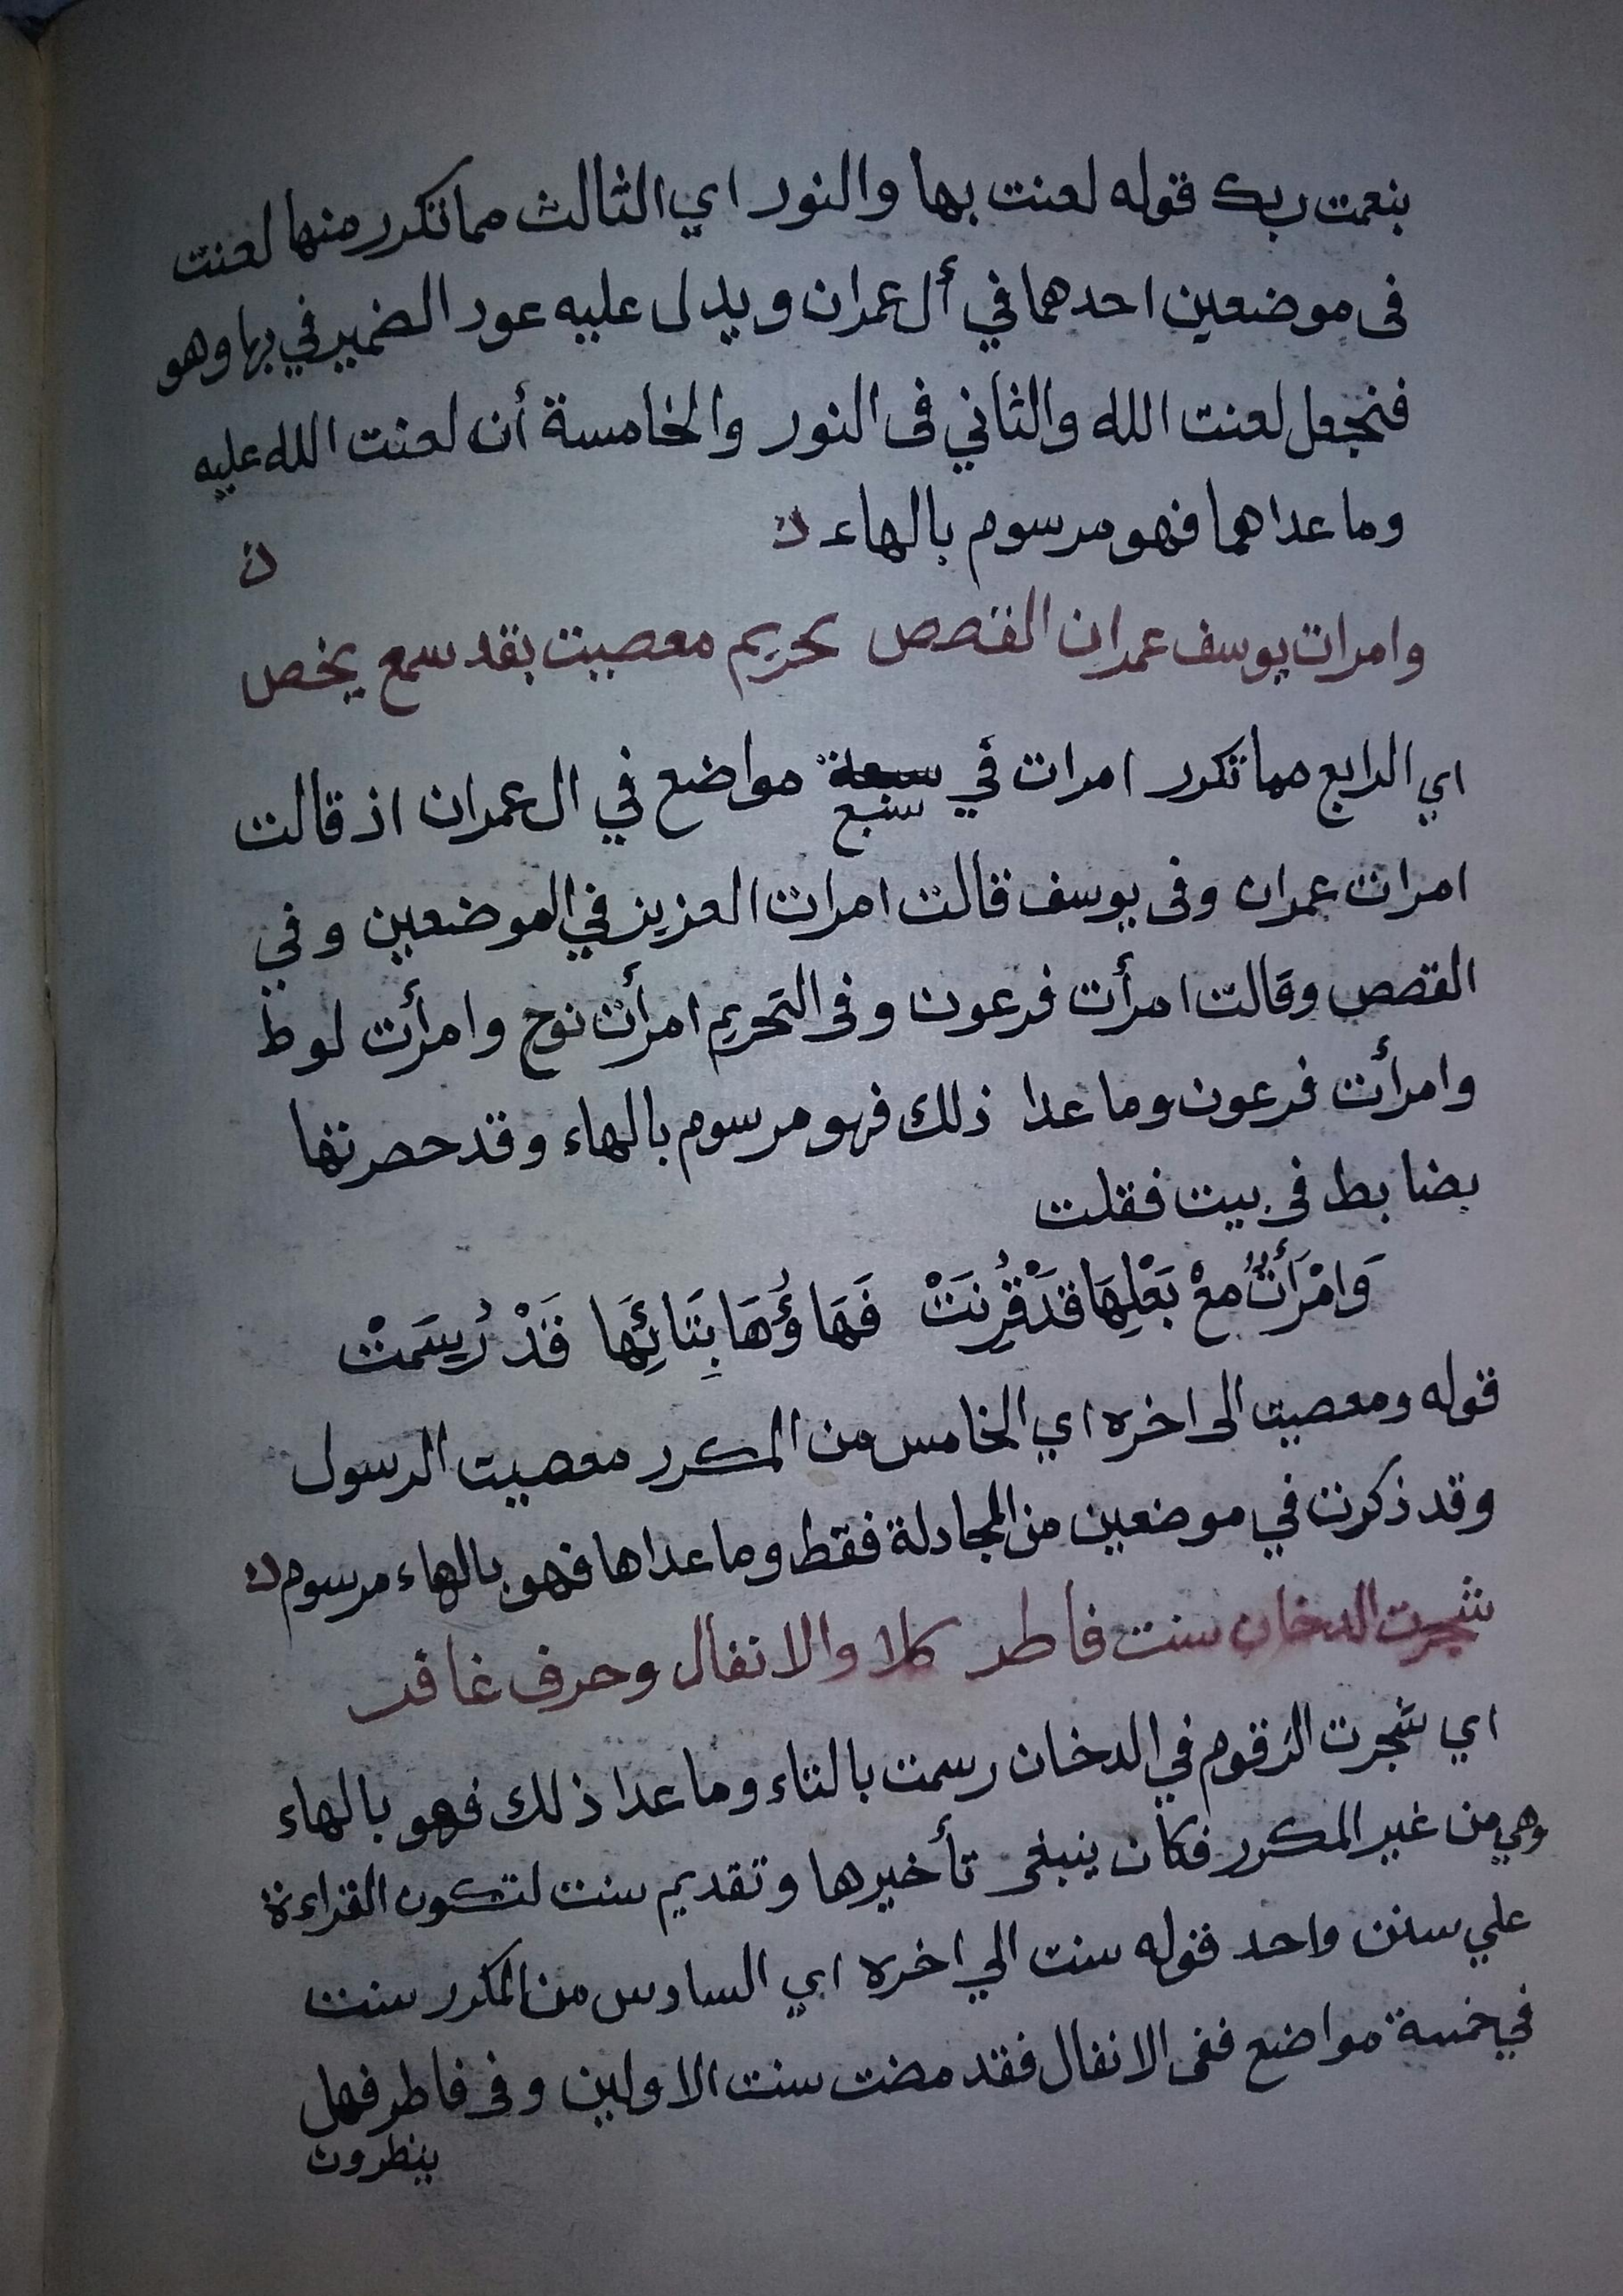 بنعمت ربك قوله لعنت بها والنور اي الثالث مما تكرر منها لعنت
فى موضعين احدهما في أل عمران ويدل عليه عود الضمير في بها وهو
فنجعل لعنت الله والثاني فى النور والخامسة أن لعنت الله عليه
وما عداهما فهو مرسوم بالهاء ن ن
وامرات يوسف عمران القصص تحريم معصيت بقد سمع يخص
اي الرابع مما تكرر امرات في سبع مواضع في ال عمران اذ قالت
امرات عمران وفى يوسف قالت امرات العزيز في الموضعين وفي
القصص وقالت امرأت فرعون وفى التحريم امرأت نوح وامرأت لوط
وامرأت فرعون وما عدا ذلك فهو مرسوم بالهاء وقد حصرتها
بضابط فى بيت فقلت
وَامْرَأَتٌ مَعْ بَعْلِهَا قَدْ قُرِنَتْ فَهَاؤُهَا بِتَائِهَا قَدْ رُسِمَتْ
قوله ومعصيت الى اخره اي الخامس من المكرر معصيت الرسول
وقد ذكرت في موضعين من المجادلة فقط وما عداها فهو بالهاء مرسوم ن
شجرت الدخان سنت فاطر كلا والانفال وحرف غافر
اي شجرت الزقوم في الدخان رسمت بالتاء وما عدا ذلك فهو بالهاء
وهي من غير المكرر فكان ينبغى تأخيرها وتقديم سنت لتكون القراءة
علي سنن واحد قوله سنت الي اخره اي السادس من المكرر سنت
في خمسة مواضع ففى الانفال فقد مضت سنت الاولين وفى فاطر فهل
ينظرون